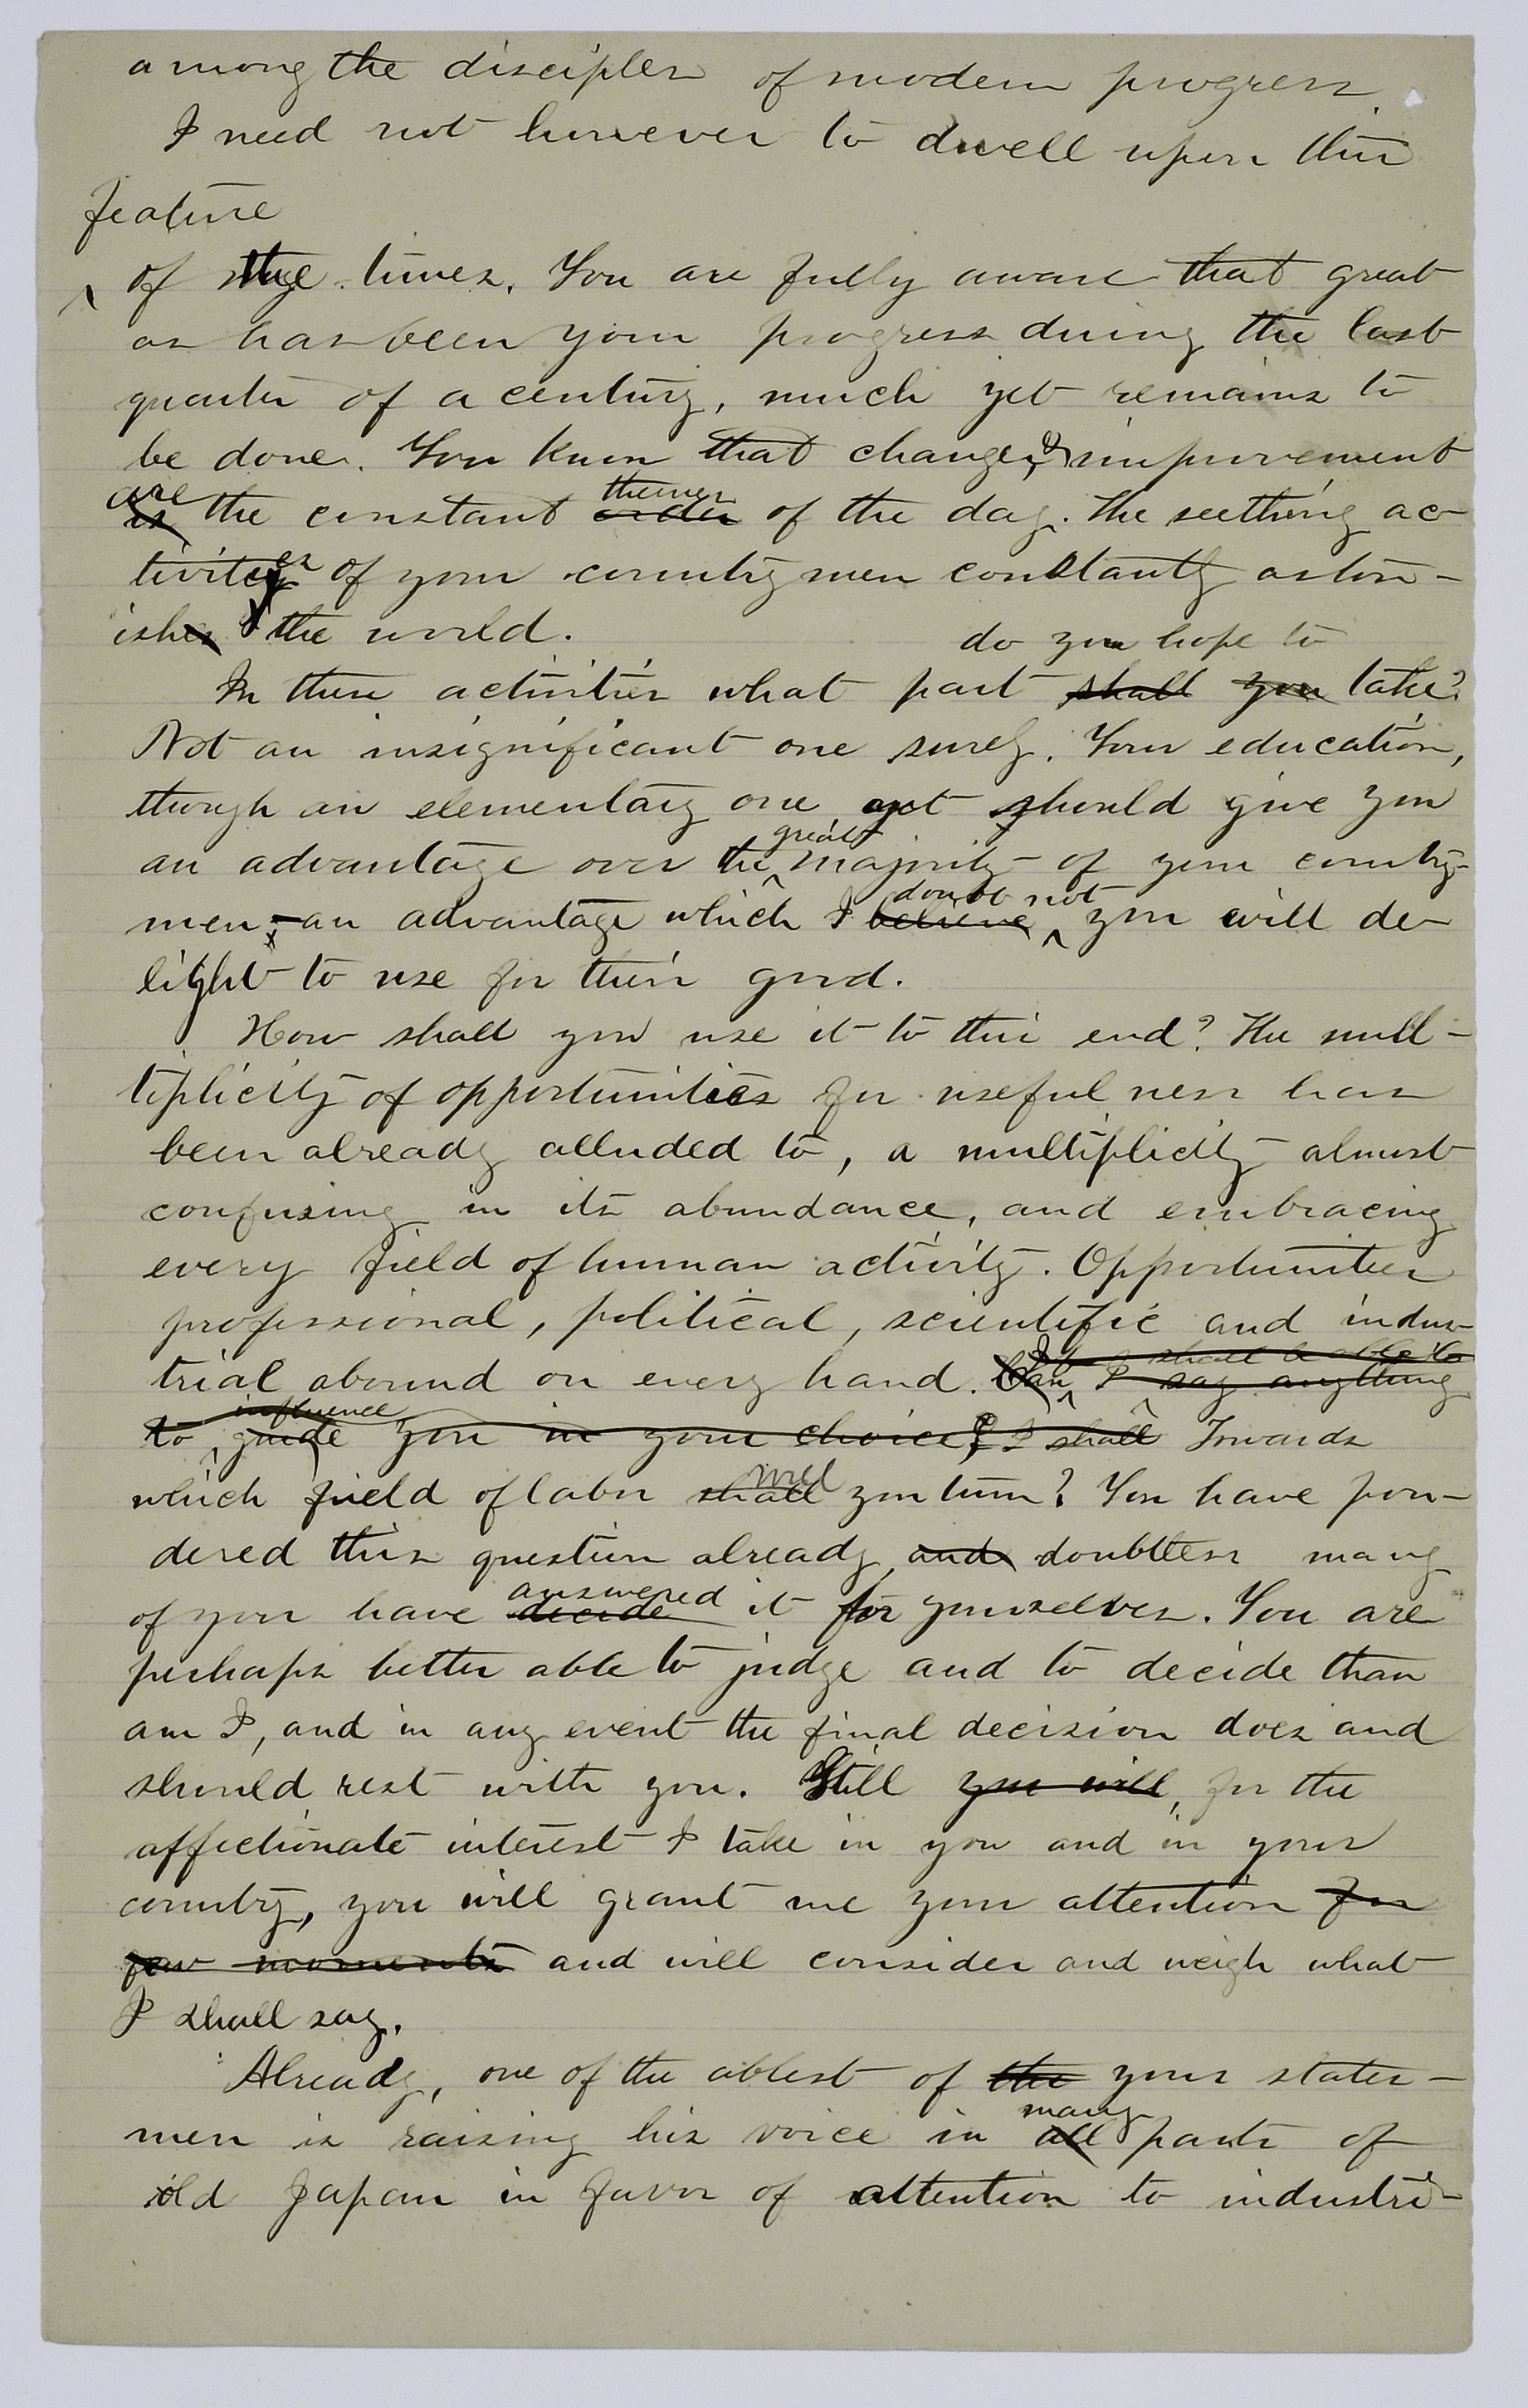 among the disciples of modern progress.
I need not however to dwell upon this
feature
^ of the times. You are fully aware that great
as has been your progress during the last
quarter of a century, much yet remains to
be done. You know that change, & improvement
are
is the constant order of the day. The seething ac-
themes
tivities of your countrymen constantly aston-
ishes the world.
do you hope to
In these activities what part shall you take?
Not an insignificant one surely. Your education,
though an elementary one yet should give you
great
an advantage over the ^ majority of your country-
doubt not
men, - an advantage which I believe ^ you will de-
light to use for their good.
How shall you use it to this end? The mul-
tiplicity of opportunities for usefulness has
been already alluded to, a multiplicity almost
confusing in its abundance, and embracing
every field of human activity. Opportunities
professional, political, scientific and indus-
shall be able to
trial abound on every hand. Can ^ I say anything
influence
to ^ guide you in your choice? I shall Towards
will
which field of labor shall you turn? You have pon-
dered this question already, and doubtless many
answered
of you have decide it for yourselves. You are
perhaps better able to judge and to decide than
am I, and in any event the final decision does and
should rest with you. Still you will, for the
affectionate interest I take in you and in your
country, you will grant me your attention for
few moments and will consider and weigh what
I shall say.
Already, one of the ablest of the your states-
many
men is raising his voice in all parts of
old Japan in favor of attention to industri-